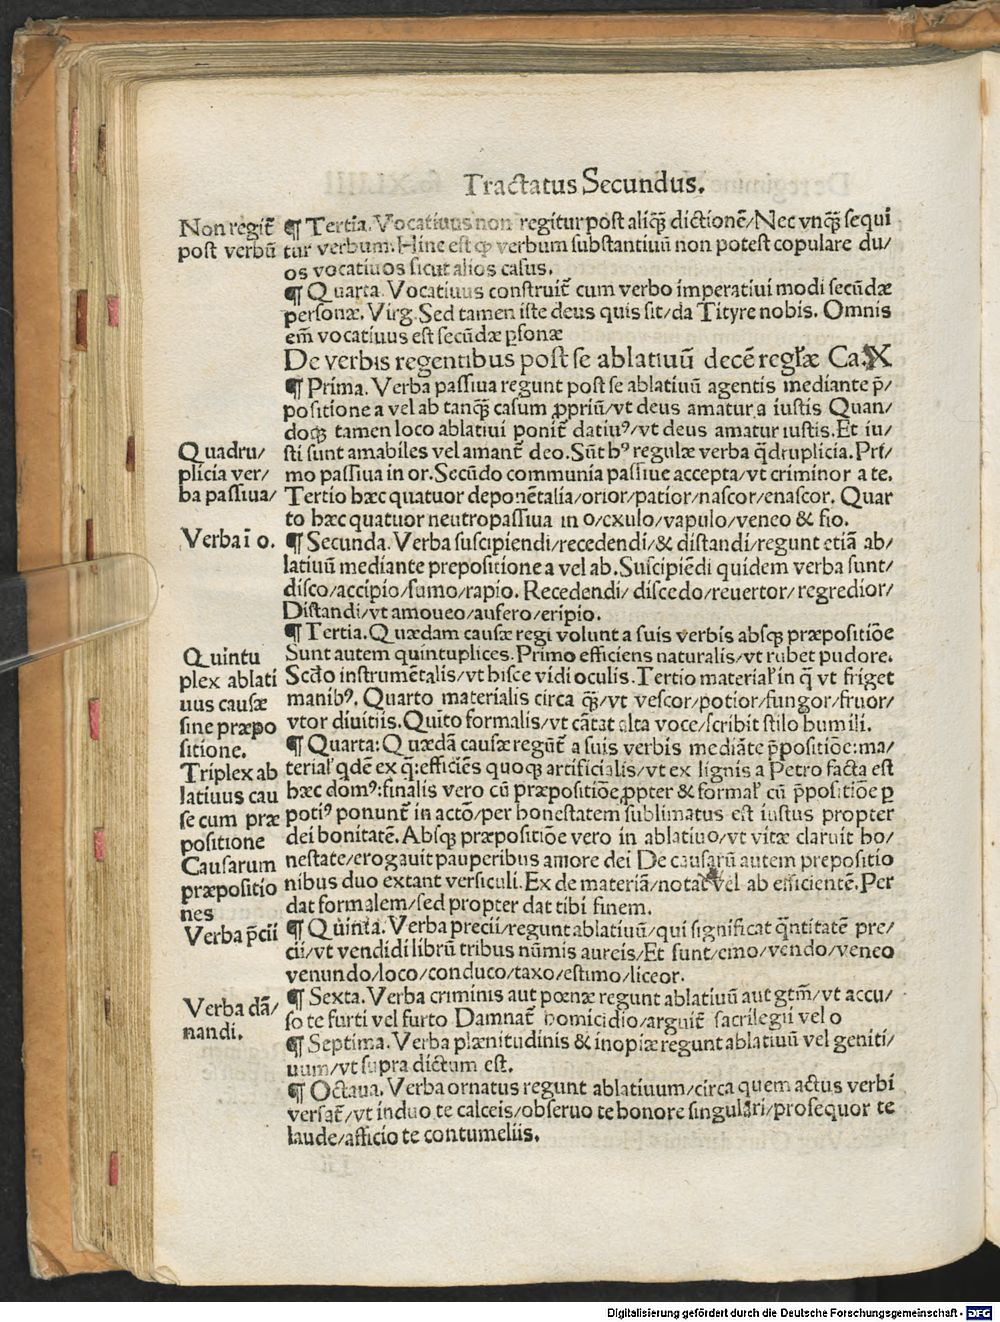 Tractatus Secundus.
Non regit̃
post verbū
¶ Tertia. Vocatiuus non regitur post aliq̃ʒ dictionē/Nec vnq̃ʒ sequi
tur verbum. Hinc est ꝙ verbum substantiuū non potest copulare du/
os vocatiuos sicut alios casus.
¶ Quarta. Vocatiuus construit̃ cum verbo imperatiui modi secūdæ
personæ. Virg. Sed tamen iste deus quis sit/da Tityre nobis. Omnis
em̃ vocatiuus est secūdæ ꝑsonæ
De verbis regentibus post se ablatiuū decē regłæ Ca.X
¶ Prima. Verba passiua regunt post se ablatiuū agentis mediante p̄/
positione a vel ab tanq̃ʒ casum ꝓpriū/vt deus amatur a iustis Quan/
doqʒ tamen loco ablatiui ponit̃ datiuꝰ/vt deus amatur iustis. Et iu/
sti sunt amabiles vel amant̃ deo. Sūt hꝰ regulæ verba q̃druplicia. Pri/
mo passiua in or. Secūdo communia passiue accepta/vt criminor a te.
Tertio hæc quatuor deponētalia/orior/patior/nascor/enascor. Quar
to hæc quatuor neutropassiua in o/exulo/vapulo/veneo & fio.
Quadru/
plicia ver/
ba passiua/
Verba ī o.
¶ Secunda. Verba suscipiendi/recedendi/& distandi/regunt etiā ab/
latiuū mediante prepositione a vel ab. Suscipiēdi quidem verba sunt/
disco/accipio/sumo/rapio. Recedendi/ discedo/reuertor/regredior/
Distandi/vt amoueo/aufero/eripio.
¶ Tertia. Quædam causæ regi volunt a suis verbis absqʒ præpositiōe
Sunt autem quintuplices. Primo efficiens naturalis/vt rubet pudore.
Scđo instrumētalis/vt hisce vidi oculis. Tertio material̉ in q̃ vt friget
manibꝰ. Quarto materialis circa q̃ʒ/vt vescor/potior/fungor/fruor/
vtor diuitiis. Quīto formalis/vt cātat alta voce/scribit stilo humili.
Quintu
plex ablati
uus causæ
sine præpo
sitione.
¶ Quarta: Quædā causæ regūt̃ a suis verbis mediāte p̄positiōe:ma/
terial̉ qdē ex q̃:efficiēs quoqʒ artificialis/vt ex lignis a Petro facta est
hæc domꝰ:finalis vero cū præpositiōe ꝓpter & formal̉ cū p̄positiōe ꝑ
potiꝰ ponunt̃ in actō/per honestatem sublimatus est iustus propter
dei bonitatē. Absqʒ præpositiōe vero in ablatiuo/vt vitæ claruit ho/
nestate/erogauit pauperibus amore dei De causarū autem prepositio
nibus duo extant versiculi. Ex de materiā/notat vel ab efficientē. Per
dat formalem/sed propter dat tibi finem.
Triplex ab
latiuus cau
se cum præ
positione
Causarum
præpositio
nes
Verba p̄cii
¶ Quinta. Verba precii/regunt ablatiuū/qui significat q̃ntitatē pre/
cii/vt vendidi librū tribus nūmis aureis/Et sunt/emo/vendo/veneo
venundo/loco/conduco/taxo/estimo/liceor.
Verba dā/
nandi.
¶ Sexta. Verba criminis aut pœnæ regunt ablatiuū aut gtm̃/vt accu/
so te furti vel furto Damnat̃ homicidio/arguit̃ sacrilegii vel o
¶ Septima. Verba plænitudinis & inopiæ regunt ablatiuū vel geniti/
uum/vt supra dictum est.
¶ Octaua. Verba ornatus regunt ablatiuum/circa quem actus verbi
versat̃/vt induo te calceis/obseruo te honore singulari/prosequor te
laude/afficio te contumeliis.
Digitalisierung gefördert durch die Deutsche Forschungsgemeinschaft - DFG